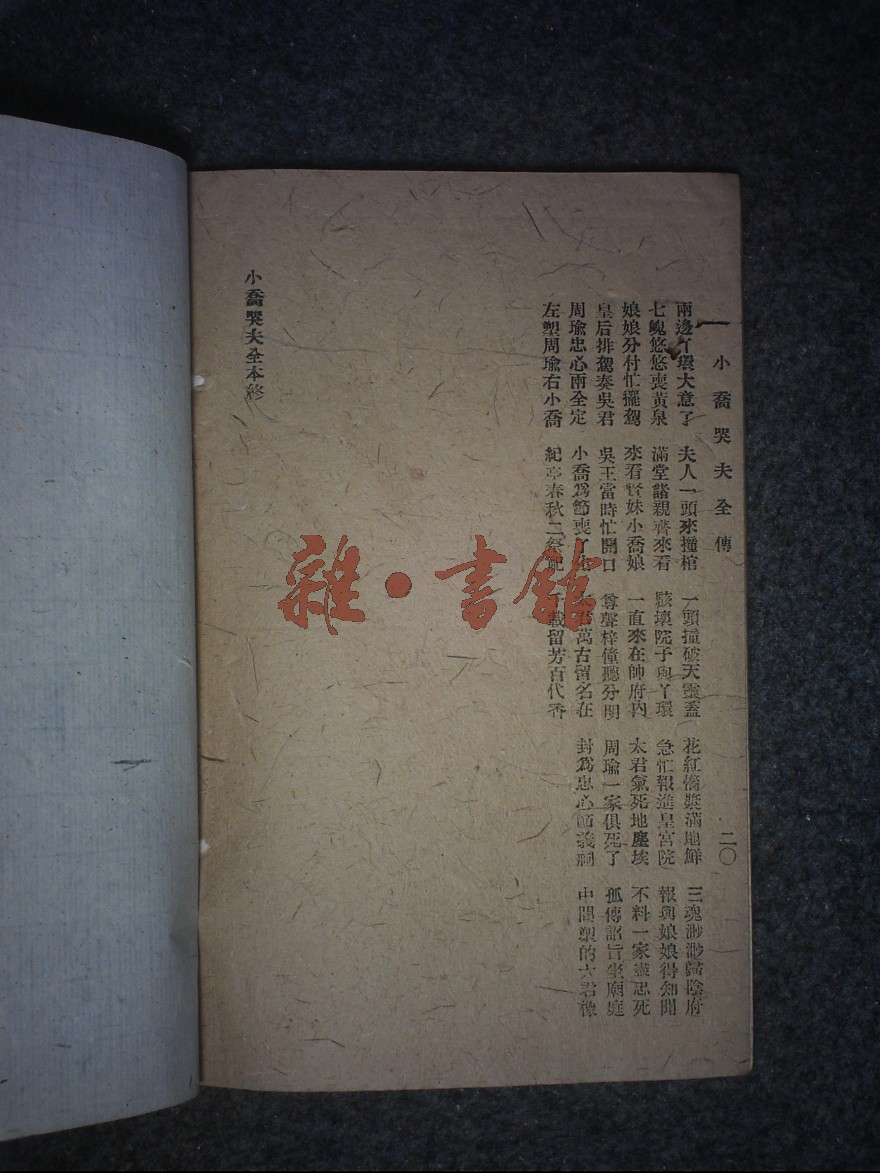 小喬哭夫全傳
二〇
兩邊丫環大意了 夫人一頭來撞棺 一頭撞破天靈蓋 花紅惱漿滿地鮮 三魂渺渺歸陰府
七魄悠悠喪黃泉 滿堂諸親齊來看 駭壞院子與丫環 急忙報進皇宮院 報與娘娘得知聞
娘娘分付忙擺駕 來看賢妹小喬娘 一直來在帥府內 太君氣死地塵埃 不料一家盡忠死
皇后排駕奏吳君 吳王當時忙開口 尊聲梓僮聽分明 周瑜一家俱死了 孤傳詔旨坐廟庭
周瑜忠心兩全定 小喬為節喪 萬古留名在 封為忠心節義祠 中間塑的太君像
左塑周瑜右小喬 紀亭春秋二祭 載留芳百代香
小喬哭夫全本終
雜·書館